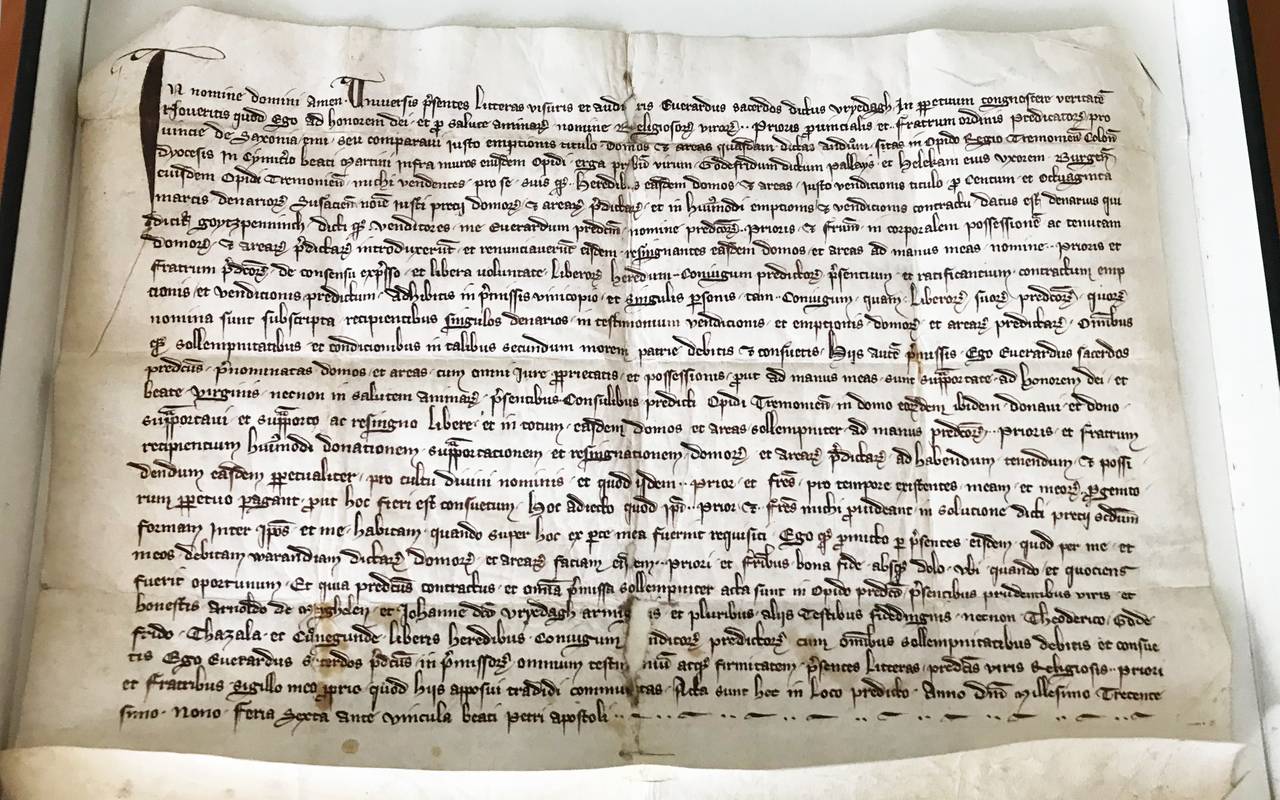 In nomine domini amen. Universis p̄sentes litteras visuris et audituris Everardus sacerdos dictus vryedagh. In ꝑpetuum congnoscere veritatē
Noveritis quod Ego ad honorem dei et ꝓ salute animarꝝ nomine Religiosorꝝ virorꝝ Prioris ꝓvincialis et Fratrum ordinis predicatorꝝ pro
vincie de Saxonia emi seu comparavi iusto emptionis titulo domos & areas quasdam dictas sitas in Opido Regio Tremonien̄ Colon̄
dyocesis in Cymit͛io beati Martini infra muros eiusdem Opidi erga virum Godefridum dictum pallays et Helekam eius vxorem Burgen̄
eiusdem Opidi Tremonien̄ michi vendentes pro se suis qꝫ heredibus easdem domos & areas iusto vendicionis titulo ꝓ Centum et Octuaginta
marcis denariorꝝ Susacien̄ noīe iusti precij domorꝝ & arearꝝ p̄dictarꝝ et in huiꝰmodi emptionis & vendicionis contractu datus est denarius qui
dicit͛ goytzpenninch dicti qꝫ venditores me Everardum predcm̄ nomine predcōrꝝ Prioris & frūm in corporalem possessionē ac tenutam
domorꝝ & arearꝝ p̄dictarꝝ introduxerūt et renunciaverūt eisdem resingnantes easdem domos et areas ad manus meas nomine Prioris et
fratrum p̄dcōrꝝ de consensu exp̄sso et libera voluntate liberorꝝ heredum Coniugum predictorꝝ p̄sentium et ratificantium contractum emp
tionis et vendicionis predictum adhibitis in p̄missis vinicopio et singulis ꝑsonis tam Coniugum quam liberorꝝ suorꝝ predcōrꝝ quorꝝ
nomina sunt subscripta recipientibus singulos denarios in testimonium vendicionis et emptionis domorꝝ et arearꝝ predictarꝝ Omnibus
qꝫ sollempnitatibus et condicionibus in talibus secundum morem patrie debitis & consuetis. Hijs autē p̄missis Ego Everardus sacerdos
predcūs p̄nominatas domos et areas cum omni iure ꝓprietatis et possessionis prout ad manus meas sunt supportate ad honorem dei et
beate virginis necnon in salutem animarꝝ p̄sentibus Consulibus predicti Opidi Tremonien̄ in domo eorūdem ibidem donavi et dono
supportavi et supporto ac resingno libere et in totum easdem domos et areas sollempniter ad manus predcōrꝝ Prioris et fratrum
recipientium huiꝰmodi donationem supportacionem et resingnationem domorꝝ et arearꝝ p̄dictarꝝ ad habendum tenendum & possi
dendum easdem ꝑpetualiter pro cultu divini nominis et quod ijdem Prior et frēs pro tempore existentes meam et meorꝝ ꝓgenito
rum ꝑpetuo ꝑagant prout hoc fieri est consuetum. Hoc adiecto quod ip̄i Prior & frēs michi ꝓvideant in solutione dicti precij scdm̄
formam inter ip̄os et me habitam quando super hoc ex ꝑte mea fuerint requisiti. Ego qꝫ ꝓmitto ꝑ p̄sentes eisdem quod per me et
meos debitam warandiam dictarꝝ domorꝝ et arearꝝ faciam eisdem Priori et fr̄ibus bona fide absqꝫ dolo vbi quando et quociens
fuerit oportunum. Et quia predcūs contractus et om̄ia p̄missa sollempniter acta sunt in Opido predcō p̄sentibus prudentibus viris et
honestis Arnoldo de et Johanne dcō vryedagh et pluribus alijs testibus fidedingnis necnon Theoderico Gode
frido Thazala et Cunegunde liberis heredibus Coniugum predictorꝝ cum om̄ibus sollempnitatibus debitis et consue
tis Ego Everardus sacerdos p̄dcūs in p̄missorꝝ omnium testimoniū atqꝫ firmitatem p̄sentes litteras predcīs viris Religiosis Priori
et fratribus sigillo meo ꝓprio quod hijs apposui tradidi communitas. Acta sunt hec in loco predicto Anno dnī Millesimo Trecente
simo Nono feria Sexta ante vincula beati petri apostoli